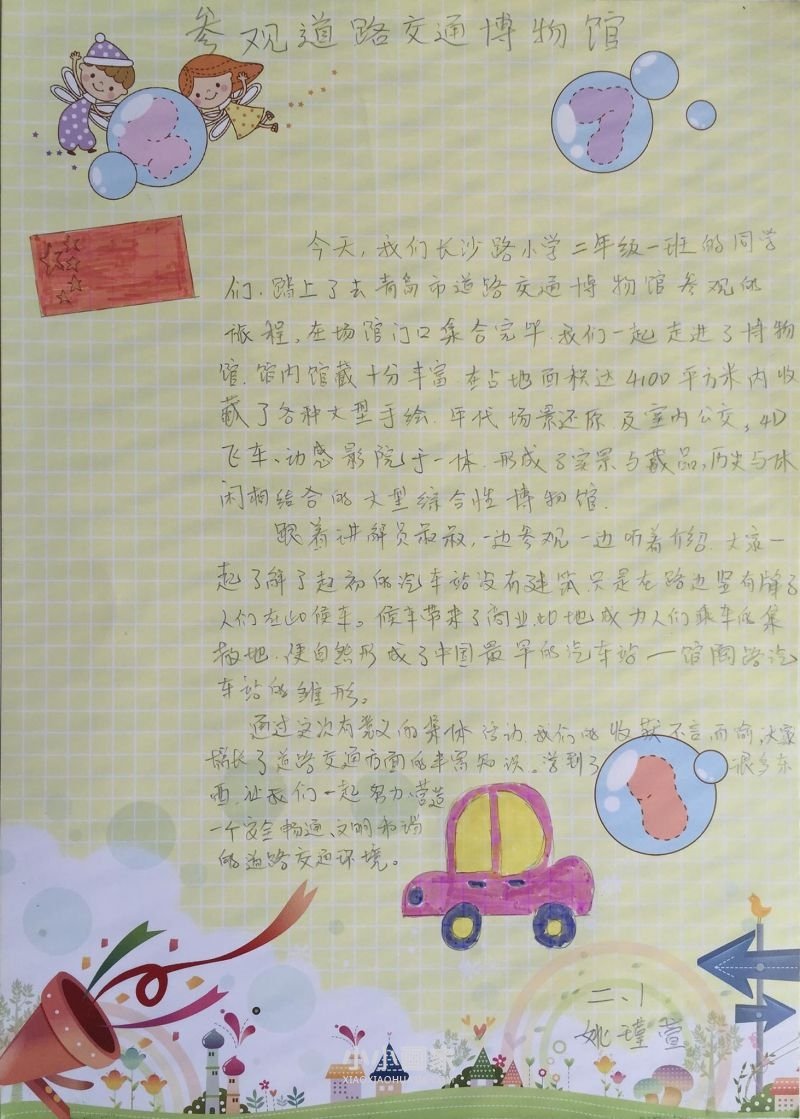 参观道路交通博物馆
今天，我们长沙路小学二年级一班的同学
们.踏上了去青岛市道路交通博物馆参观的
旅程，在场馆门口集合完毕.我们一起走进了博物
馆.馆内馆藏十分丰富.在占地面积达4100平方米内收
藏了各种大型手绘.年代场景还原.及室内公交，4D
飞车、动感影院于一体.形成了实景与藏品，历史与休
闲相结合的大型综合性博物馆.
跟着讲解员叔叔，一边参观一边听着介绍.大家一
起了解了起初的汽车站没有建筑.只是在路边竖有牌子
人们在此候车。候车带来了商业.此地成为人们乘车的集
散地.使自然形成了中国最早的汽车站一馆陶路汽
车站的雏形。
通过这次有意义的集体活动.我们的收获不言而喻，大家
增长了道路交通方面的丰富知识。学到了很多东
西.让我们一起努力、营造
一个安全畅通、文明和谐
的道路交通环境。
二、1
姚瑾萱
小小画家
XIAOXIAOHUAJIA